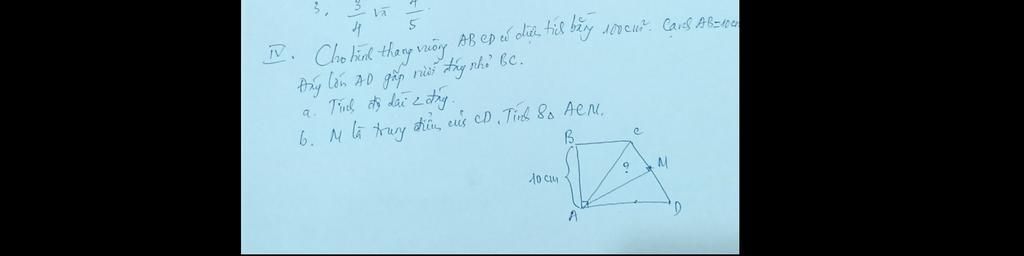 3. 3/4 và 4/5.
IV. Cho hình thang vuông ABCD có diện tích bằng 100cm². Cạnh AB=10cm
Đáy lớn AD gấp rưỡi đáy nhỏ BC.
a. Tính độ dài 2 đáy.
b. M là trung điểm của CD. Tính S△ ACM.
B C
10cm ? M
A D